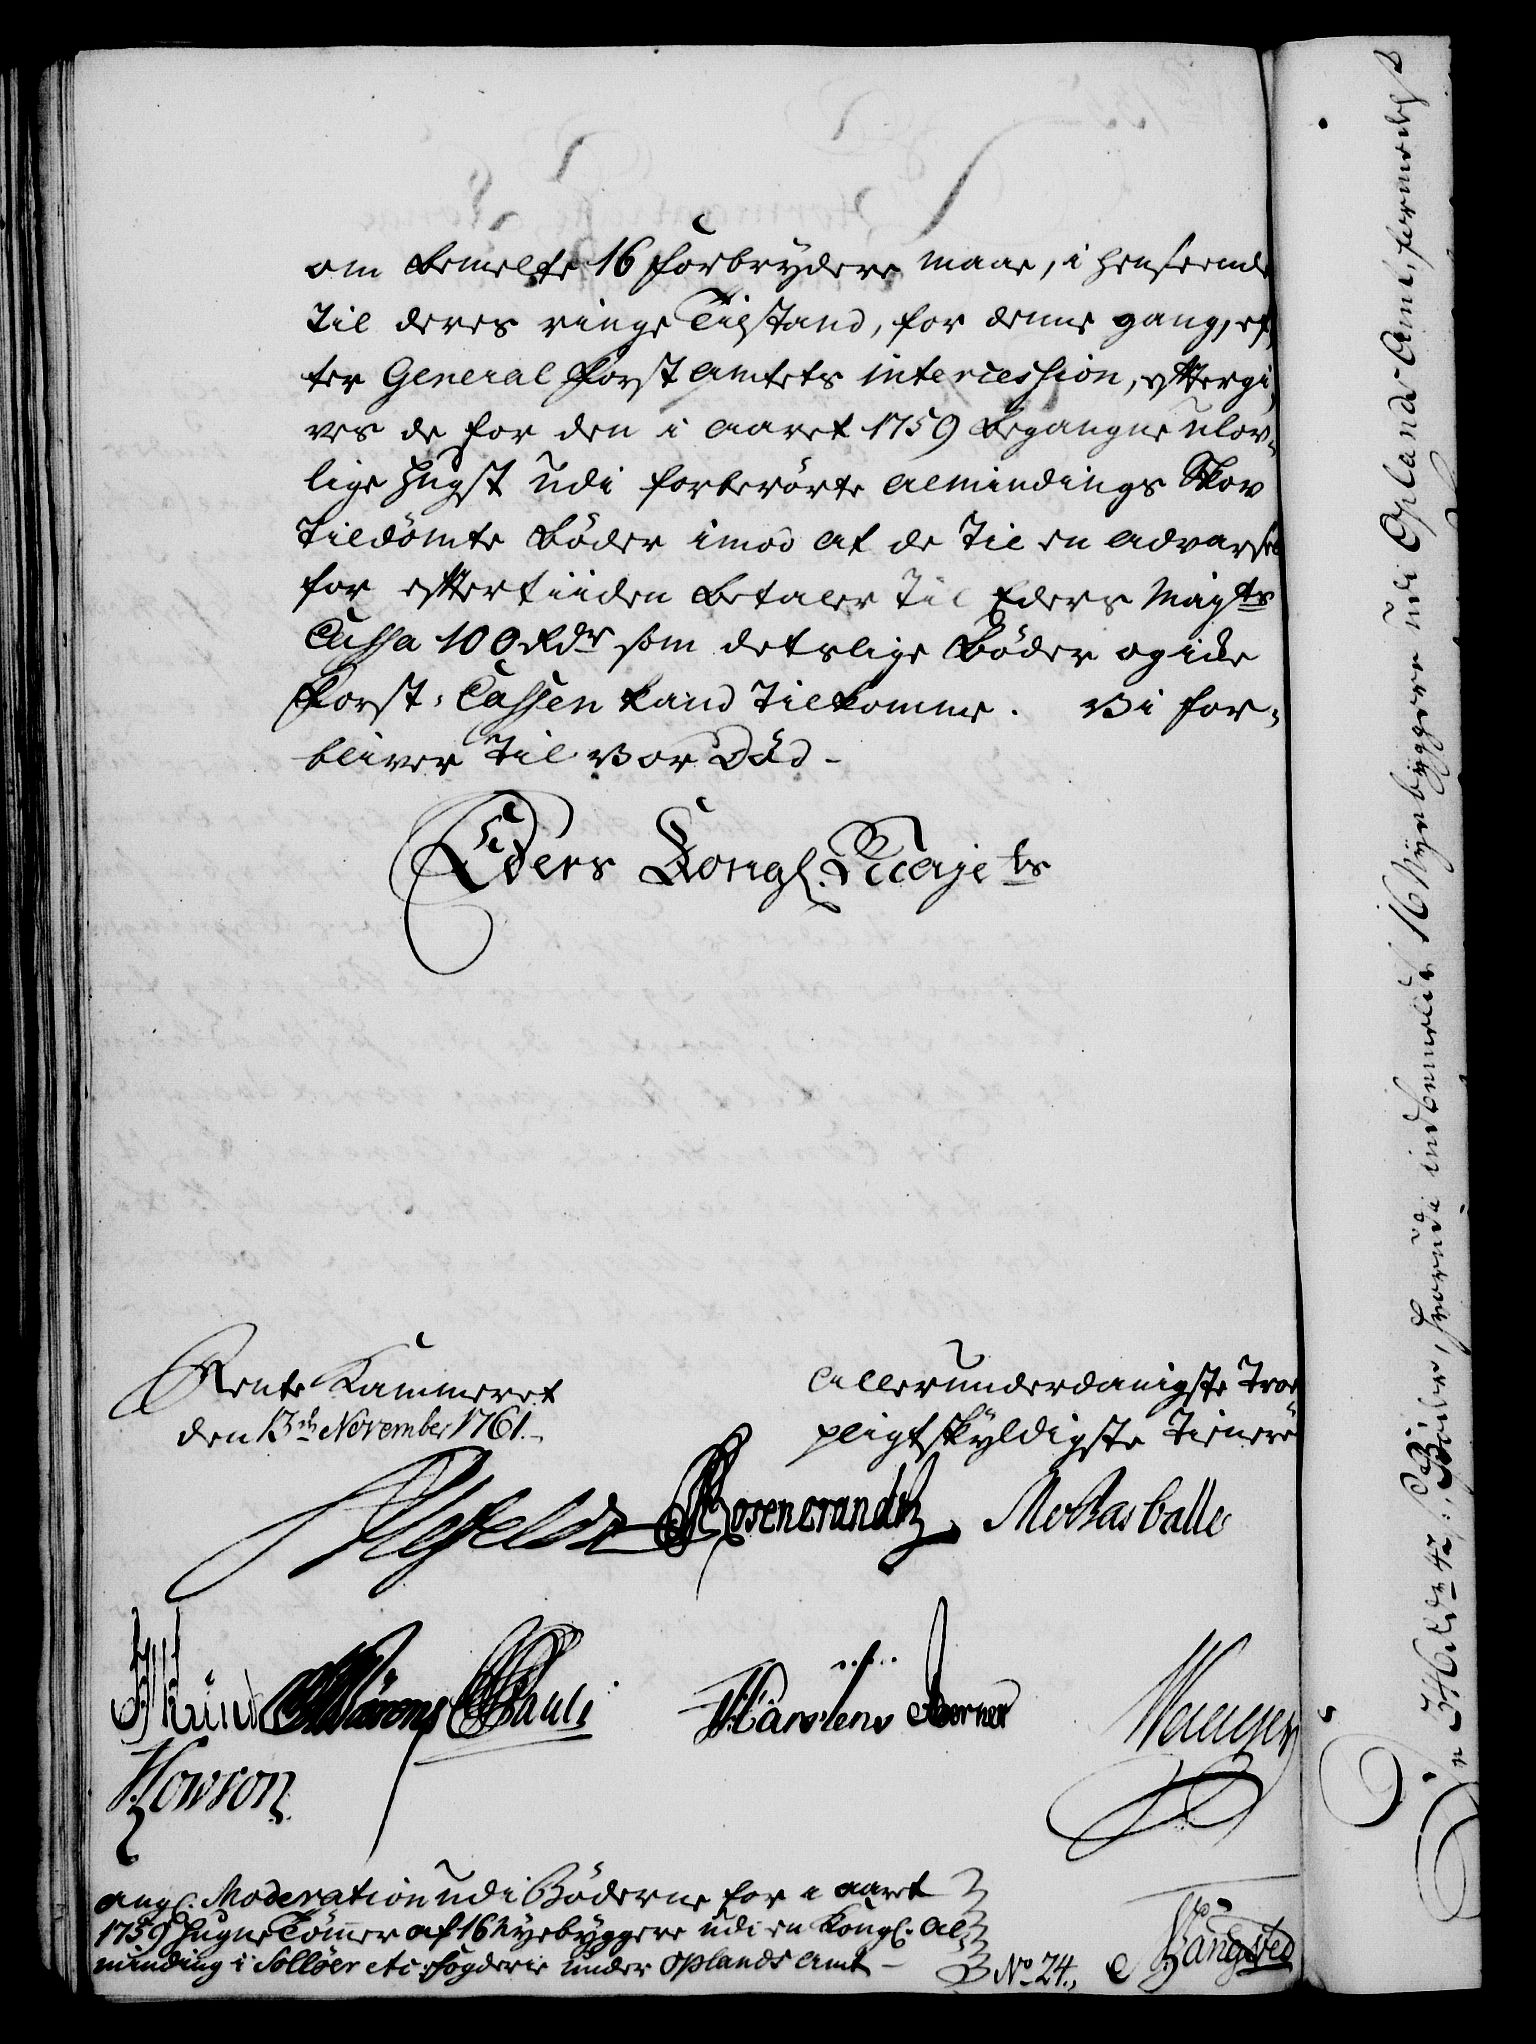 om bemelte 16 Forbrydere maae, i henseende
til deres ringe Tilstand, for denne gang, ef,
ter General Forst Amtets intercession, eftergi,
ves de for den i Aaret 1759 begangne ulov-
lige Hugst udi forberörte Almindings Skov
tildömte Böder imod at de til en Advarsel
for eftertiiden betaler til Eders Mayts
Cassa 100 Rdr som
Forst-Cassen kand tilkomme. Vi for-
bliver til vor Död-
Eders Kongl. Majets
Rente Kammeret
den 13de November 1761.
Allerunderdanigste Troe
pligtskyldigste Tienere
Rosencrandtz
Pauli
Karstens Berner
Wenger
Howson
angl. Moderation udi Böderne for i Aaret
1759 Hugne Tömmer af 16 Nyebyggere udi en Kongl. Al,
minding i Solløer etc. Fogderie under Oplands Amt-
No 24.
Bangsted
indbemelte 16 Nyebyggere udi Oplands Amt,